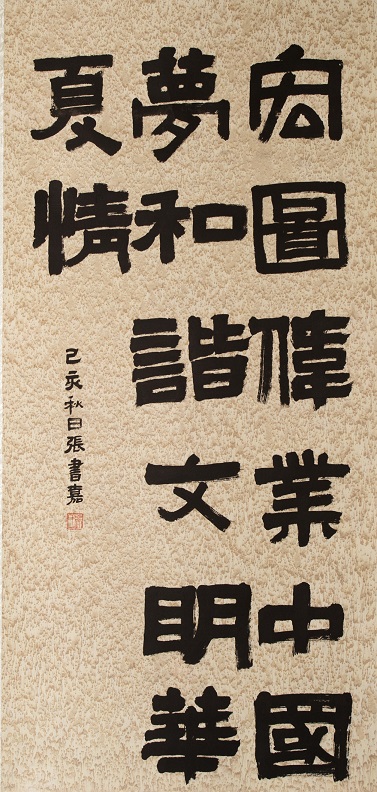 宏圖偉業中國
夢和諧文明華
夏情
己亥秋日張書嘉